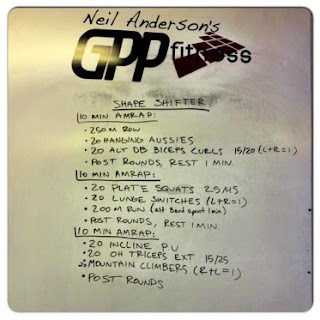 Neil Anderson's
GPP fitness
SHAPE SHIFTER
10 MIN AMRAP:
• 250 M ROW
• 20 HANGING AUSSIES
• 20 ALT DB BICEPS CURLS 15/20 (L+R=1)
• POST ROUNDS, REST 1 MIN.
10 MIN AMRAP:
• 20 PLATE SQUATS 25/45
• 20 LUNGE SWITCHES (L+R=1)
• 200 M RUN (alt Band sprint 1min)
• POST ROUNDS, REST 1 MIN
10 MIN AMRAP:
• 20 INCLINE P.U
• 20 OH TRICEPS EXT 15/25
MOUNTAIN CLIMBERS (R+L=1)
• POST ROUNDS